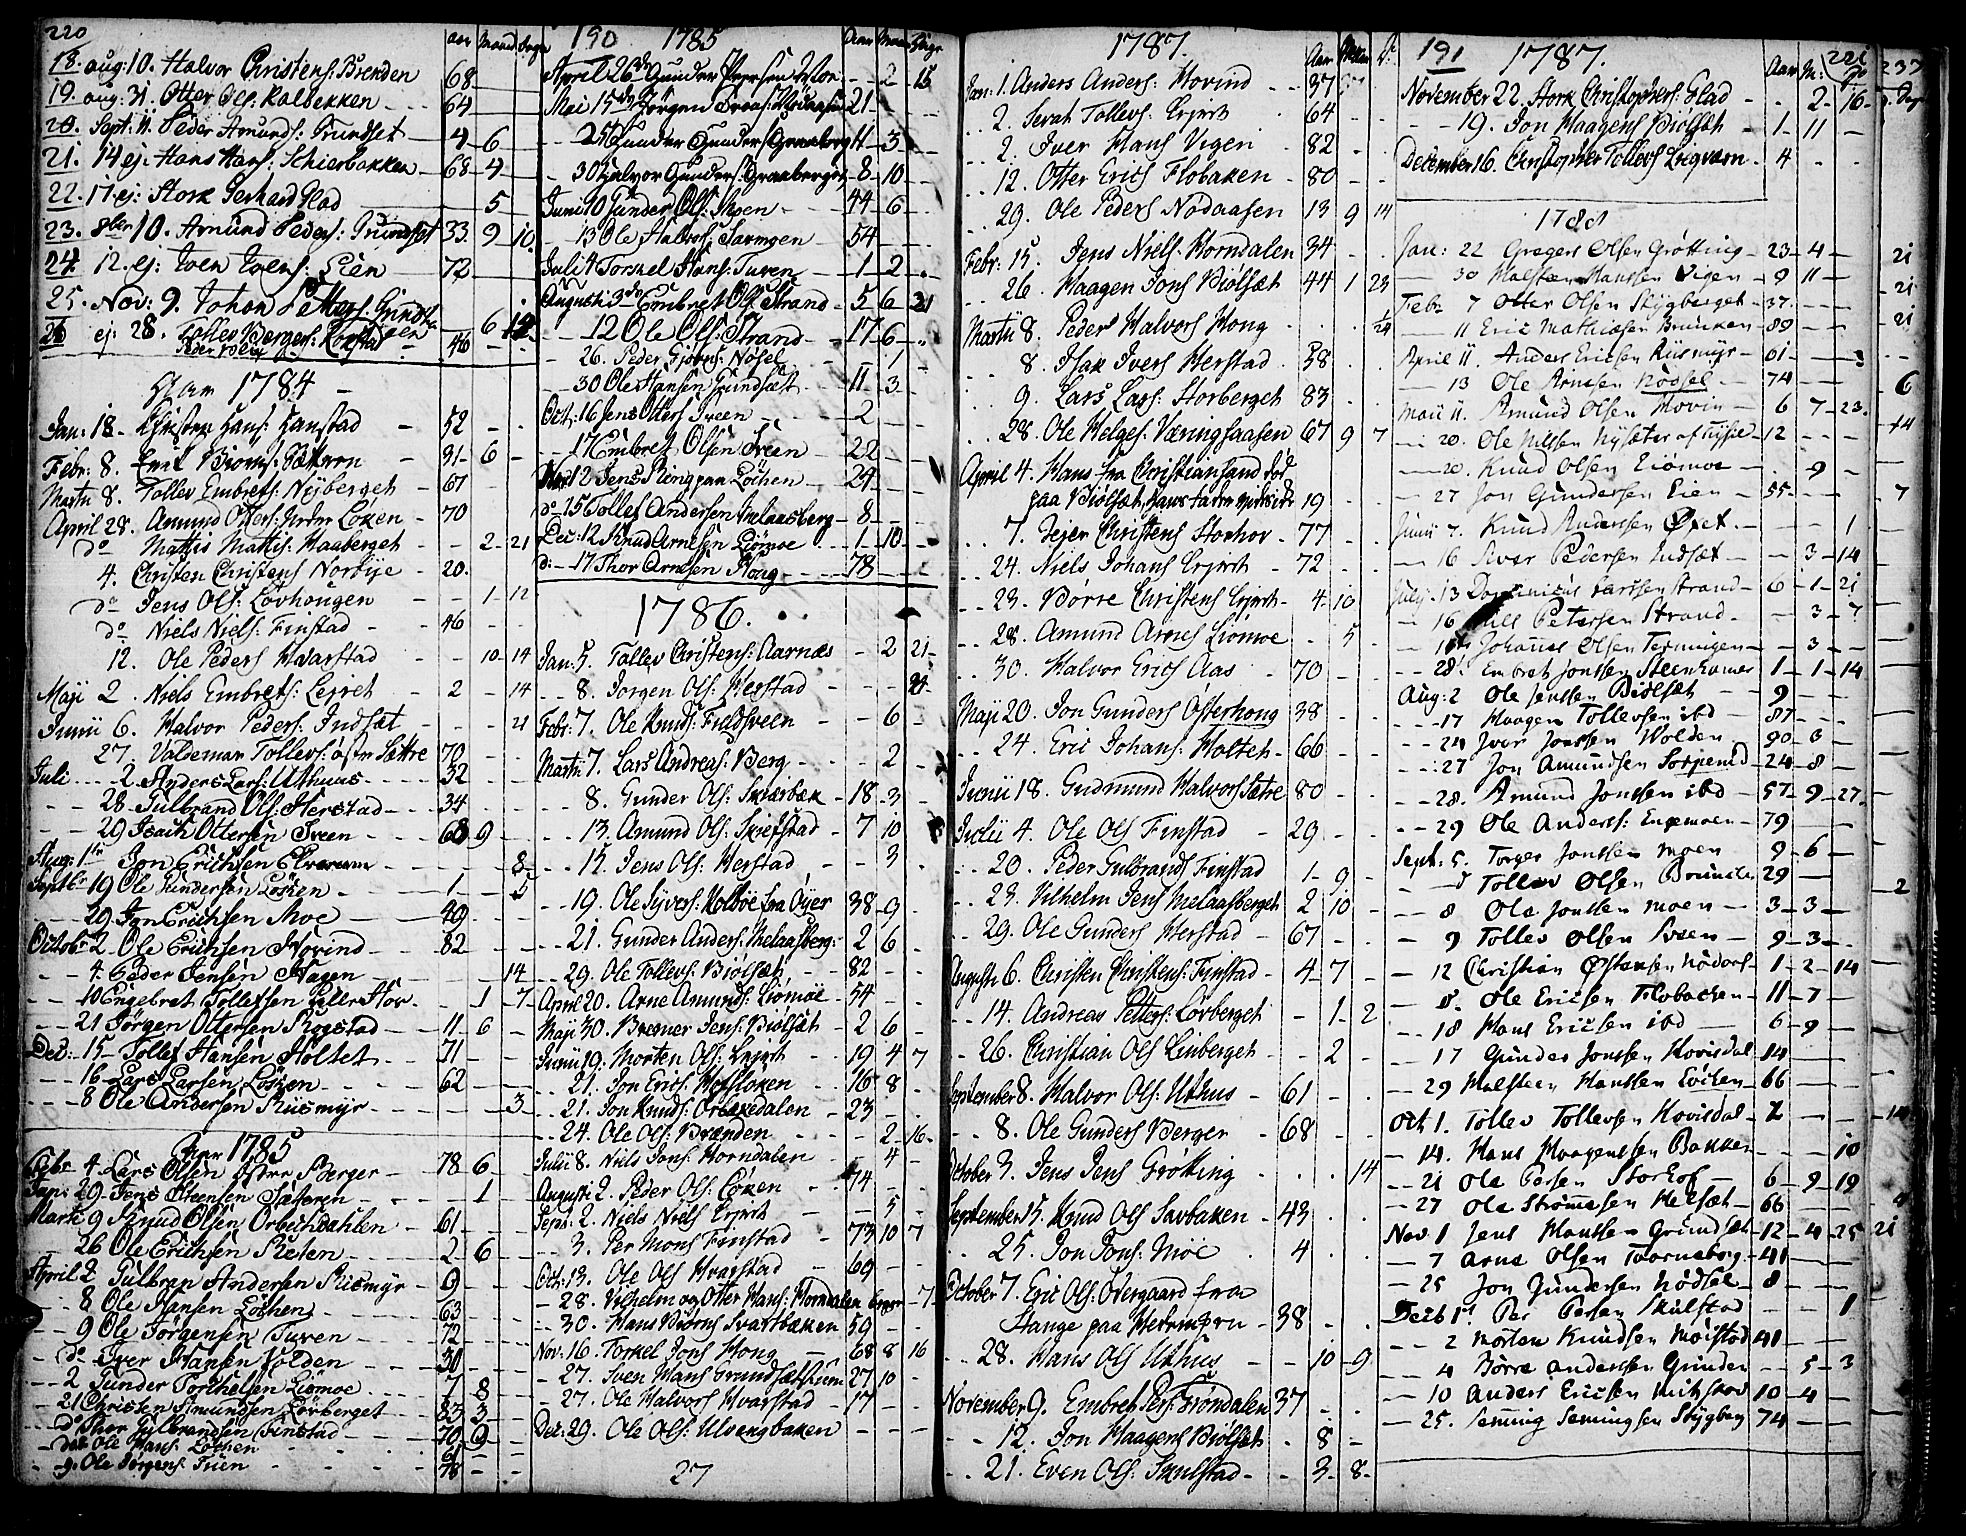 220
aar Maan: Dage
18. aug: 10. Halvor Christens: Brenden 68
19. aug: 31. Otter Ols: Kalbekken 64
20. Sept. 11. Peder Amunds: Grundset 4 6
21. 14 ej: Hans Hans: Schierbakken 68 4
22. 17 ej: Stork Gerhard Glad 5
23. 8ber 10. Amund Peders: Grundset 33 9 10
24. 12. ej: Iven Ivens: Lien 72
25. Nov: 9. Johan Petters: Grindst 6 12
26 ej: 28. Tollev Bergers: Rokstad 46
Aar 1784
Jan: 18. Christen Hans: Hanstad 52
Febr: 8. Emb 91 6
Martii 8. Tollev Embrets: Nyberget 67
April 28. Amund Otters: Løken 70
do Mattis Mattis: Haaberget 2 21
4. Christen Christens Nordbye 20
do Jens Ols: Løvhougen 1 12
do Niels Niels: Finstad 46
12. Ole Peders Hvarstad 10 14
Maji 2. Niels Embrets: Lejret 2 14
Junii 6. Halvor Peders: Indset 21
27. Valdemar Tollevs: Sættre 70
Juli 2. Anders Lars: Uthuus 32
28. Gulbrand Ols: Herstad 34
29 Isach Ottersen Sveen 68 9
Aug: 1te Jon Erichsen Elverum 8
Septbr 19 Ole Gundersen Løken 1 5
29 Jon Erichsen Moe 49
Octobr 2. Ole Erichsen Hovind 82
4. Peder Jensen Hagen 14
10 Engebret Tollefsen Hov 1 7
21 Jørgen Ottersen Rogstad 11 6
Dec: 15 Tollef Hansen Holtet 71
16 Lars Larsen Løken 62
8 Ole Andersen Riismyr 3
Aar 1785
Febr 4 Lars Olsen Berger 78 6
Jan: 29 Jens Steensen Sæteren 1
Martii 9 Knud Olsen Orbechdahlen 61
26 Ole Erichsen Risten 2 6
April 2 Gulbran Andersen Riismyr 9
8 Ole Hansen Løchen 63
9 Ole Jørgensen Tuven 72
do Iver Hansen Volden 30
2 Gunder Torchelsen Liømoe 7 8
21 Christen Amundsen Løvberget 83 3
do Thor Gulbrandsen Finstad 70 9
Ole Hans: Løchen 61
9. Ole Jørgens: Tuen 78
190 1785
Aar Maan Dage
April 26de Gunder Peersen 2 15
Mei 15de Jørgen Nødaasen 21
25de Gunder Gunders Graaberget 4 3
30 Halvor Gunders: Graaberget 8 10
Juni 10 Gunder Ols: Moen 44 6
13 Ole Halvors: Sarmoen 54
Juli 4 Torkel Hans: Tuven 1 2
Augusti 3de Embret Ols: Strand 5 6 21
12 Ole Ols: Strand 17 6
26. Peder Gjørns: Nøsel 1
30 Ole Hansen Grindset 11 3
Oct: 16 Jens Otters Sveen 2
17 Embret Olsen Sveen 22
Nov 12 Jens Ring paa Løchen 29
do 15 Tollef Andersen Melaasberg 8
Dec: 12 Knud Arnesen Liømoe 1 10
d: 17 Thor Arnesen Houg 78
1786.
Jan: 5. Tollev Christens: Aarnæs 2 21
8. Jorgen Ols: Herstad 24
Febr: 7. Ole Knuds: Fieldsveen 6
Martii 7. Lars Andreas: Berg 2
8. Gunder Ols: Skiærbæk 18 3
13. Amund Ols: Skiefstad 7 10
15. Jens Ols: Herstad 3
19. Ole Syvers: Holbøe fra Øyer 38 9
21. Gunder Anders: Melaasberg: 2 6
29. Ole Tollevs: Biølset 82
April 20. Arne Amunds: Liømoe 54
Maji 30. Berner Jens: Biølset 2 6
Junii 19. Morten Ols: Lejret 19 4 7
21. Jon Erics: Hofsløken 16 8
21. Jon Knuds: Orbækdalen 23
24. Ole Ols: Brænden 2 16
Julii 8. Niels Jons: Horndalen 4
Augusti 2. Peder Ols: Løken 74
Sept: 2. Niels Niels Lejret 5
3. Per Mons Finstad 73 10 7
Oct: 13. Ole Ols Hvarstad 69
28. Vilhelm og Otter Hans: Horndalen 7
30. Hans Biørns Svartbæken 59
Nov: 16. Torkel Jons Houg 68 8 16
27. Sven Hans Grundsæthuun 27 10
27. Ole Halvors Hvarstad 17
Dec: 29. Ole Ols: Ulvangbaken
27
1787.
Aar Maan D:
Jan: 1. Anders Anders: Hovind 37
2. Sevat Tollevs: Lejret 64
2. Iver Hans Vigen 82
12. Otter Erics Flobaken 80
29. Ole Peders Nødaasen 13 9 14
Febr: 15. Jens Niels Horndalen 34
26. Haagen Jons Biølset 44 1 23
Martii 8. Peder Halvors Houg
8. Isak Ivers Herstad 38
9. Lars Lars: Storberget 83
28. Ole Helges: Væringsaasen 67 9 7
April 4. Hans fra Christiansand død
paa Biølset, 19
7. Pejer Christens Storhov 77
24. Niels Johans Lejret 72
23. Børre Christens Lejret 4 10
28. Amund Arnes Liømoe 5
30. Halvor Erics Aas 70
Maji 20. Jon Gunders Østerhoug 38
24. Eric Johans: Holteh 66
Junii 18. Gudmund Halvors Sætre 80
Julii 4. Ole Ols Finstad 29
20. Peder Gulbrands Finstad 1 9
23. Vilhelm Jens Melaasberget 2 10
29. Ole Gunders Herstad 67
Augusti 6. Christen Christens: Finstad 4 7
14. Andreas Petters: Lovberget 1 2
26. Christian Ols Linberget 2
September 8. Halvor Ols: Uthus 61
8. Ole Gunders Berger 68
October 3. Jens Jens Grøtting 14
September 15. Knud Ols Savbaken 43
25. Jon Jons: Moe 4
October 7. Eric Ols: Overgaard fra
Stange paa Herim 38
28. Hans Ols Uthus 10 9
November 9. Embret Pers: Grøndalen 37
12. Jon Haagens Biølset 8
21. Even Ols: Skulstad 3 8
191 1787.
221 233
Aar M: D
November 22. Stork Christophers: Glad 2 16
19. Jon Haagens Biølset 1 11
December 16. Christopher Tollevs Leigvam 4
1788
Jan: 22 Gregers Olsen Grøtting 23 4
30 Halsten Hansen Vigen 9 11
Febr 7 Otter Olsen Skygberget 37
11 Eric Mathiesen Brunken 89
April 11. Anders Ericsen Riismyr 61 3
13 Ole Arnesen Nødsel 74
Maii 11. Amund Olsen Hovin 6 7 23
20. Ole Nilsen Nysæter 12
20. Knud Olsen Liømoe 9
27 Jon Gundersen Lien 55
Junii 7. Knud Anderssen Øset 1
16 Iver Pedersen Indset 3 14
July 13 Dominicus Larssen Strand 6 1 21
16 Nils Petersen Strand 3 7
16 Johannes Olsen Terningen 3
28. Embret Jonssen Steenhamer 1 1 14
Aug: 2 Ole Jenssen Biølset 9
17 Haagen Tollevsen ibd 87
24 Iver Jonssen Wolden 90 8
27 Jon Amundsen Sorpeend 24 8
28. Amund Jonssen ibd 57 9 27
29 Ole Anders: Engmoen 79
Sept: 5. Torger Jonssen Moen 9 6
Tollev Olsen Brunken 29
8 Ole Jonssen Moen 3 3
9 Tollev Olsen Sveen 9 3
12 Christian Østensen Nødaas 1 2 14
8. Ole Ericsen Flobachen 11 7
18 Hans Ericsen ibd 6 9
17 Gunder Jonssen Hovisdal 14
29 Halsteen Hanssen Løcken 66
Oct 1. Tollev Tollevsen Hovisdal 2
14. Hans Haagenssen Bakken 10
21 Ole Persen Storhof 6 9 19
27 Ole Strømsøen Helset 66
Nov 1 Jens Hanssen Grundset 12 4 25
7 Arne Olsen Toorneberg 41
25 Jon Gundersen Nødsel 8
Decb 1st Per Persen Skulstad 1
2 Morten Knudsen Moistad 41
4 Børre Andersen Grinder 5 3
10 Anders Ericsen Mitskov 10 4
25. Seming Semingsen Skygberg 74